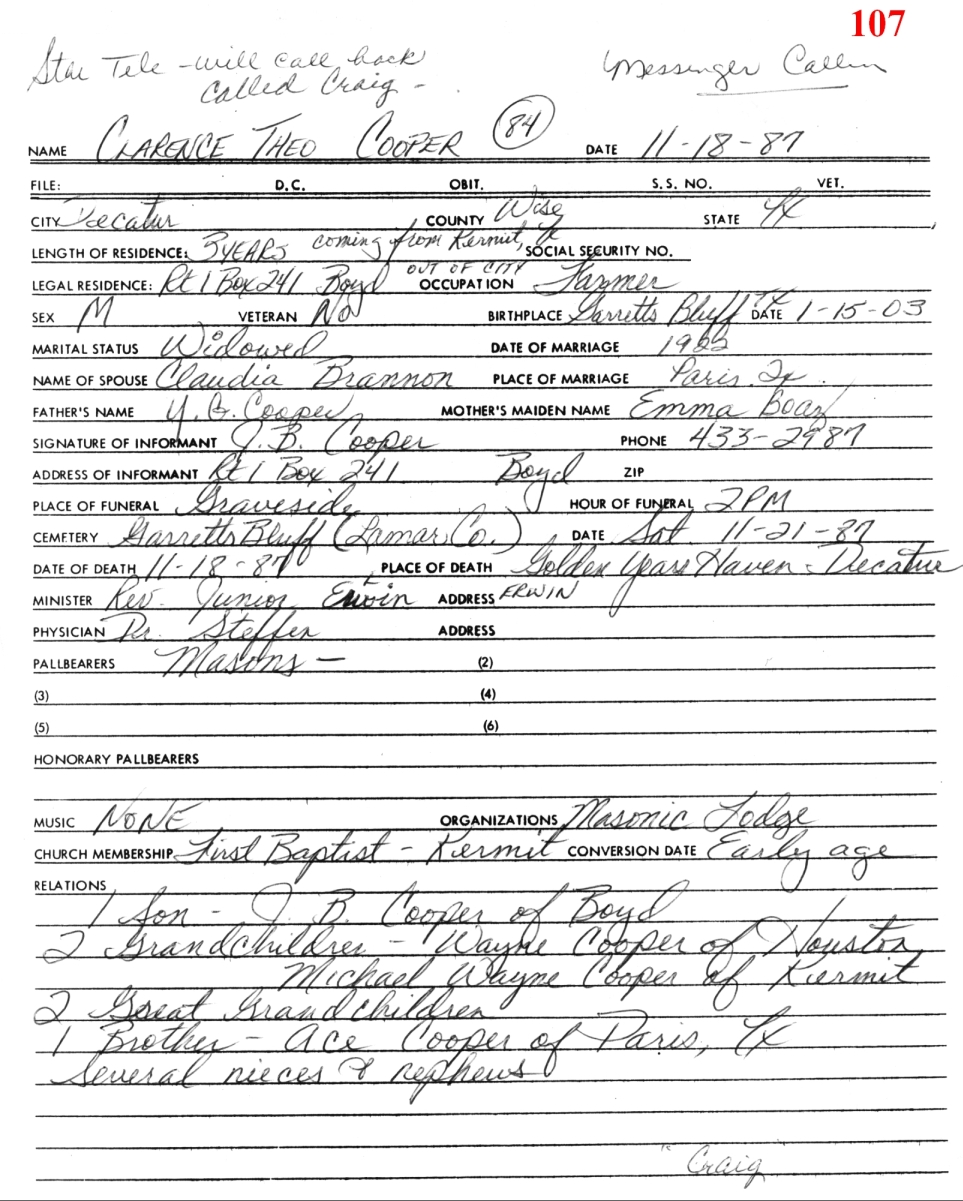 107
Star Tele - will call back
called Craig -
Messenger Callin
NAME CLARENCE THEO COOPER 84 DATE 11-18-87
FILE: D.C. OBIT. S.S. NO. VET.
CITY Decatur COUNTY Wise STATE TX
LENGTH OF RESIDENCE: 3 YEARS coming from Kermit, TX SOCIAL SECURITY NO.
LEGAL RESIDENCE: Rt 1 Box 241 Boyd OUT OF CITY OCCUPATION Farmer
SEX M VETERAN No BIRTHPLACE Garretts Bluff TX DATE 1-15-03
MARITAL STATUS Widowed DATE OF MARRIAGE 1922
NAME OF SPOUSE Claudia Brannon PLACE OF MARRIAGE Paris, Tx.
FATHER'S NAME Y. G. Cooper MOTHER'S MAIDEN NAME Emma Boaz
SIGNATURE OF INFORMANT J. B. Cooper PHONE 433-2987
ADDRESS OF INFORMANT Rt 1 Box 241 Boyd ZIP
PLACE OF FUNERAL Graveside HOUR OF FUNERAL 2PM
CEMETERY Garretts Bluff (Lamar Co.) DATE Sat. 11-21-87
DATE OF DEATH 11-18-87 PLACE OF DEATH Golden Years Haven - Decatur
MINISTER Rev. Junior Erwin ADDRESS ERWIN
PHYSICIAN Dr. Steffen ADDRESS
PALLBEARERS Masons - (2)
(3) (4)
(5) (6)
HONORARY PALLBEARERS
MUSIC NONE ORGANIZATIONS Masonic Lodge
CHURCH MEMBERSHIP First Baptist - Kermit CONVERSION DATE Early age
RELATIONS
1 Son - J. B. Cooper of Boyd
2 Grandchildren - Wayne Cooper of Houston
Michael Wayne Cooper of Kermit
2 Great Grandchildren
1 Brother - Ace Cooper of Paris, TX
Several nieces & nephews
Craig